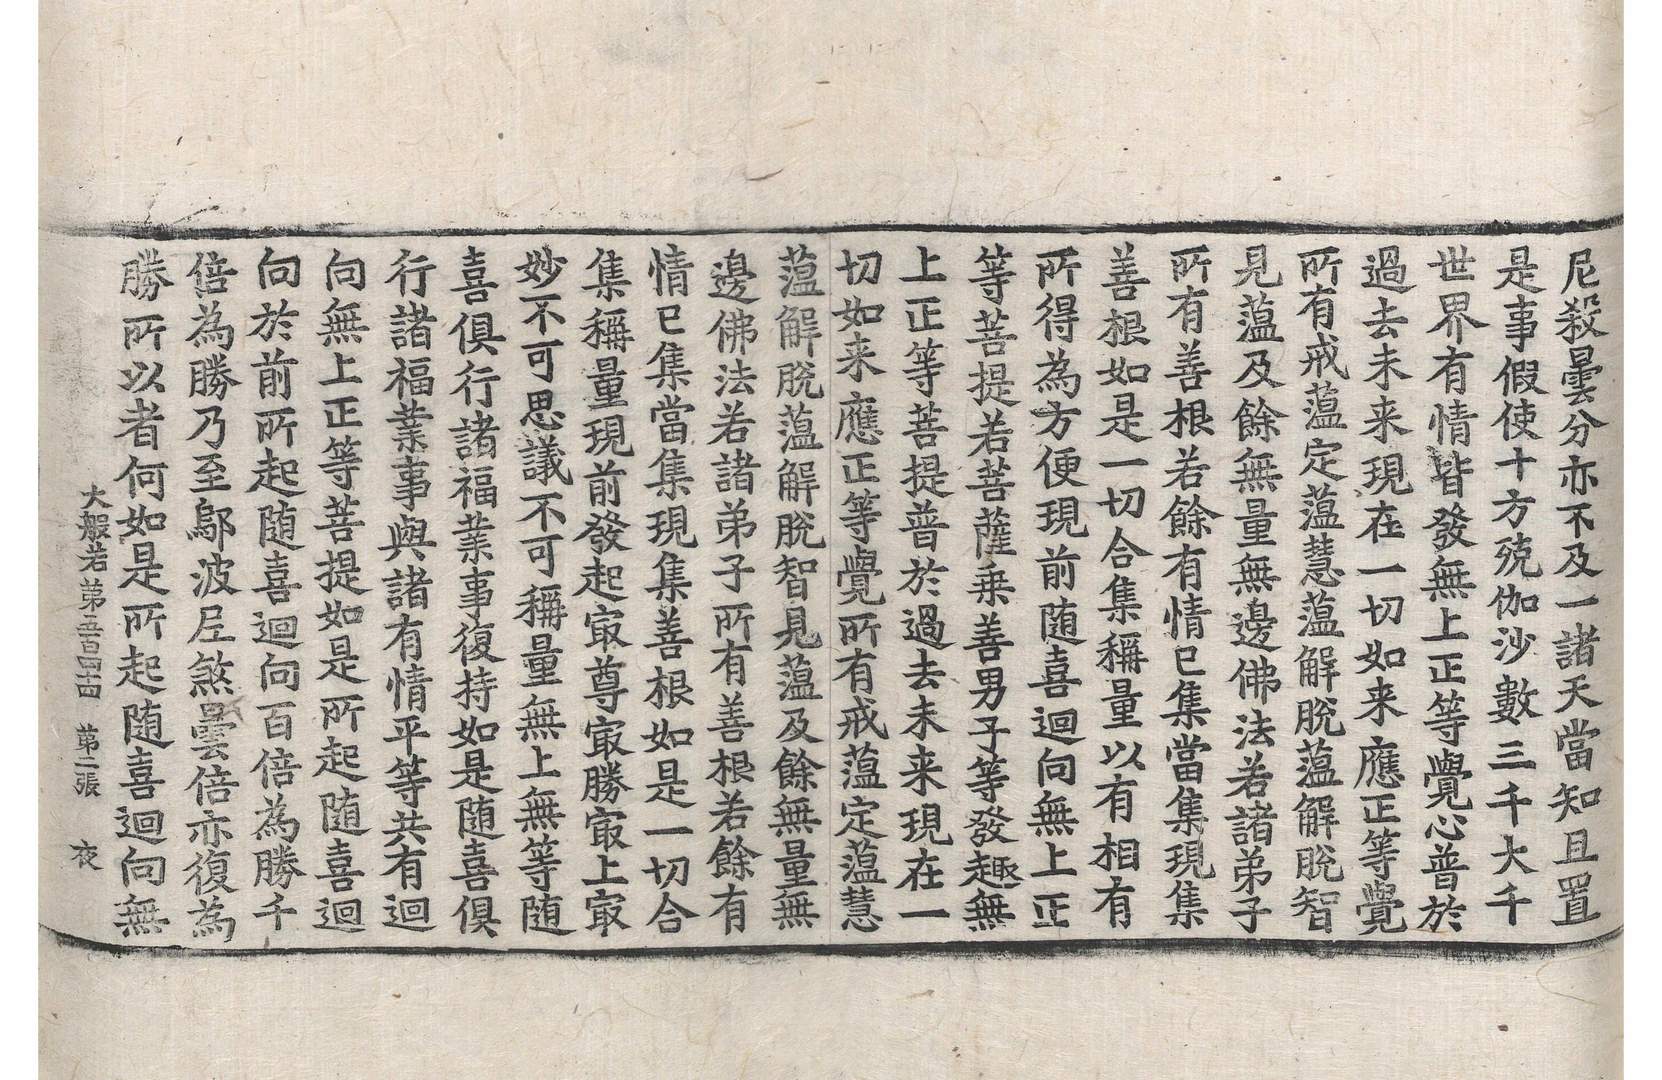 尼殺曇分亦不及一諸天當知且置
是事假使十方殑伽沙數三千大千
世界有情皆發無上正等覺心普於
過去未来現在一切如来應正等覺
所有戒蕰定蕰慧蕰解脫蕰解脫智
見蕰及餘無量無邊佛法若諸弟子
所有善根若餘有情已集當集現集
善根如是一切合集稱量以有相有
所得為方便現前随喜迴向無上正
等菩提若菩薩乗善男子等發趣無
上正等菩提普於過去未来現在一
切如来應正等覺所有戒蕰定蕰慧
蕰解脫蕰解脫智見蕰及餘無量無
邊佛法若諸弟子所有善根若餘有
情已集當集現集善根如是一切合
集稱量現前發起㝡尊㝡勝㝡上㝡
妙不可思議不可稱量無上無等随
喜俱行諸福業事復持如是随喜俱
行諸福業事與諸有情平等共有迴
向無上正等菩提如是所起随喜迴
向於前所起随喜迴向百倍為勝千
倍為勝乃至鄔波尼煞曇倍亦復為
勝所以者何如是所起随喜迴向無
大般若第五百四十四 第二張 夜